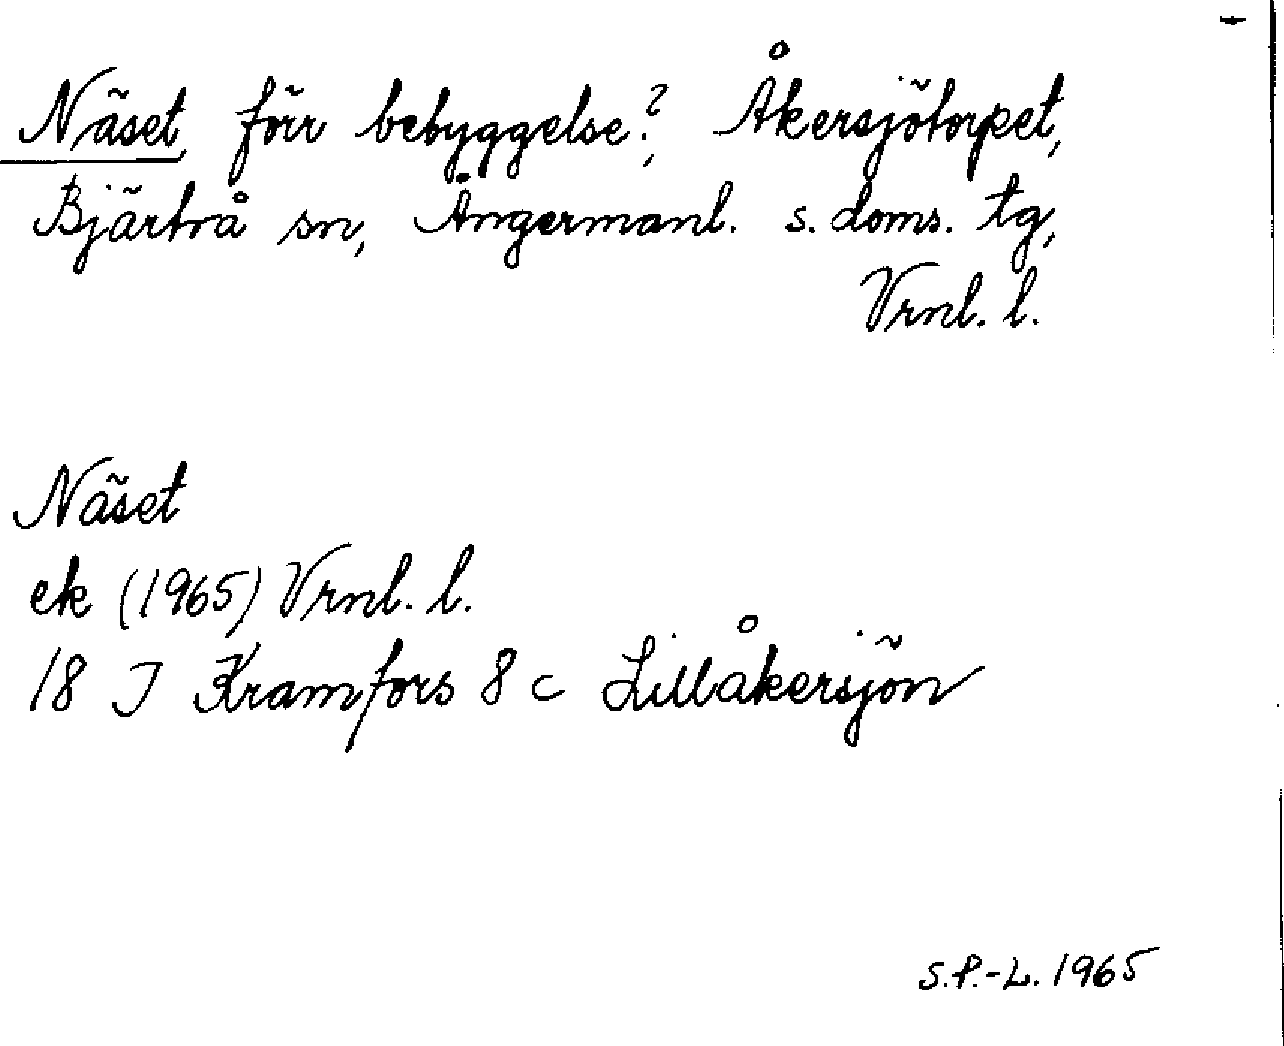 Näset, förr bebyggelse?, Åkersjötorpet,
Bjärtrå sn, Ångermanl. s. doms. tg,
Vrnl. l.
Näset
ek (1965) Vrnl. l.
18 J Kramfors 8 c Lillåkersjön
S.P.-L. 1965